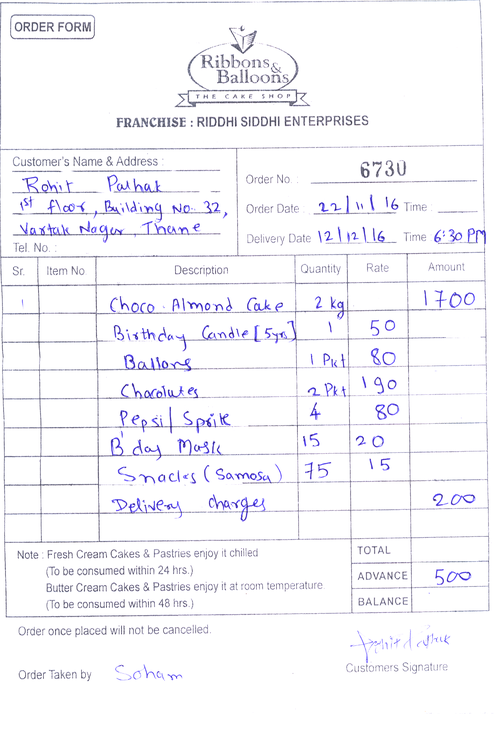 ORDER FORM
Ribbons &
Balloons
THE CAKE SHOP
FRANCHISE : RIDDHI SIDDHI ENTERPRISES
Customer's Name & Address :
Rohit Pathak
1st floor, Building No. 32,
Vartak Nagar, Thane
Tel. No. :
Order No : 6730
Order Date : 22/11/16 Time :
Delivery Date 12/12/16 Time 6:30 PM
Sr. Item No Description Quantity Rate Amount
1 Choco. Almond Cake 2 kg 1700
Birthday Candle [5yrs] 1 50
Ballons 1 Pkt 80
Chocolates 2 Pkt 190
Pepsi/Sprite 4 80
B'day Mask 15 20
Snacks (Samosa) 75 15
Delivery charges 200
Note : Fresh Cream Cakes & Pastries enjoy it chilled
(To be consumed within 24 hrs.)
Butter Cream Cakes & Pastries enjoy it at room temperature.
(To be consumed within 48 hrs.)
TOTAL
ADVANCE 500
BALANCE
Order once placed will not be cancelled.
Order Taken by Soham
Customers Signature